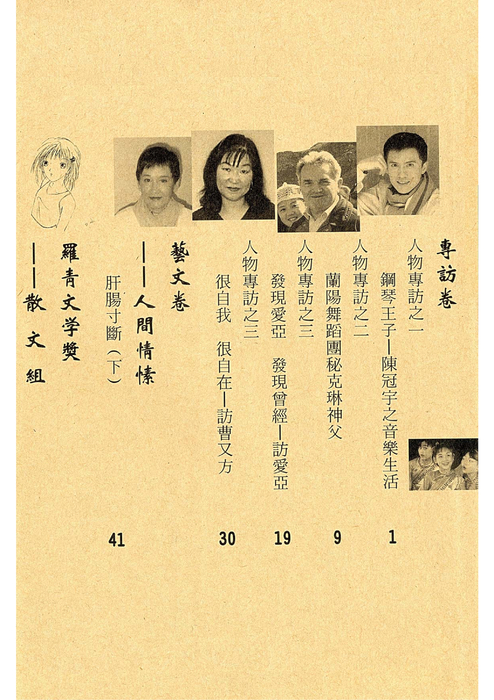 專訪卷
人物專訪之一
鋼琴王子—陳冠宇之音樂生活 1
人物專訪之二
蘭陽舞蹈團秘克琳神父 9
人物專訪之三
發現愛亞 發現曾經—訪愛亞 19
人物專訪之三
很自我 很自在—訪曹又方 30
藝文卷
——人間情愫
肝腸寸斷（下） 41
羅青文学獎
——散文組